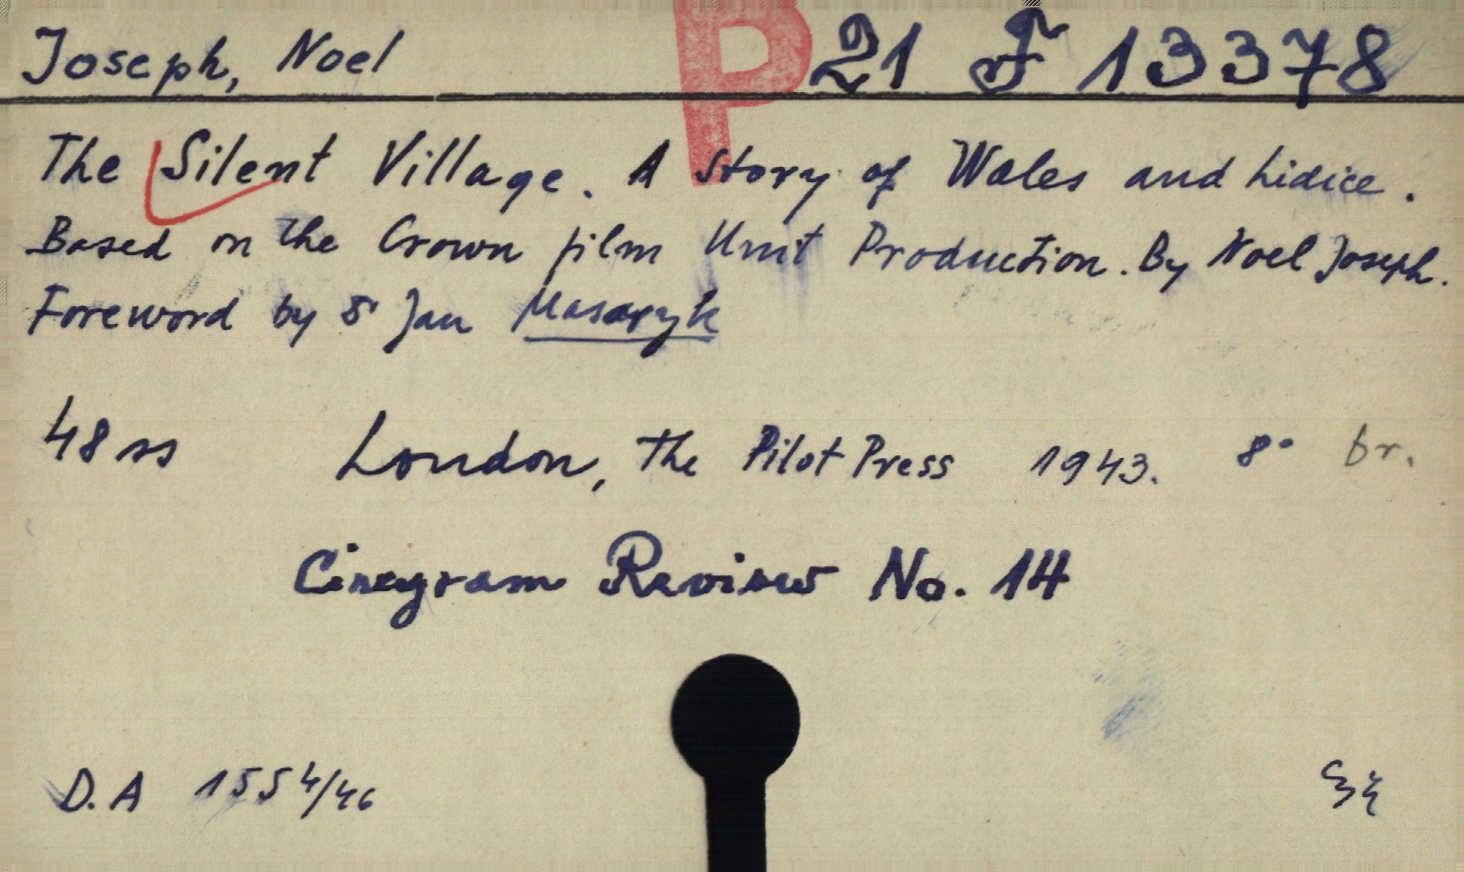 Joseph, Noel P 21 F 13378
The Silent Village. A story of Wales and Lidice.
Based on the Crown film Unit Production. By Noel Joseph.
Foreword by Jan Masaryk
48 ss London, The Pilot Press 1943. 8° br.
Cinegram Review No. 14
D.A 1554/46